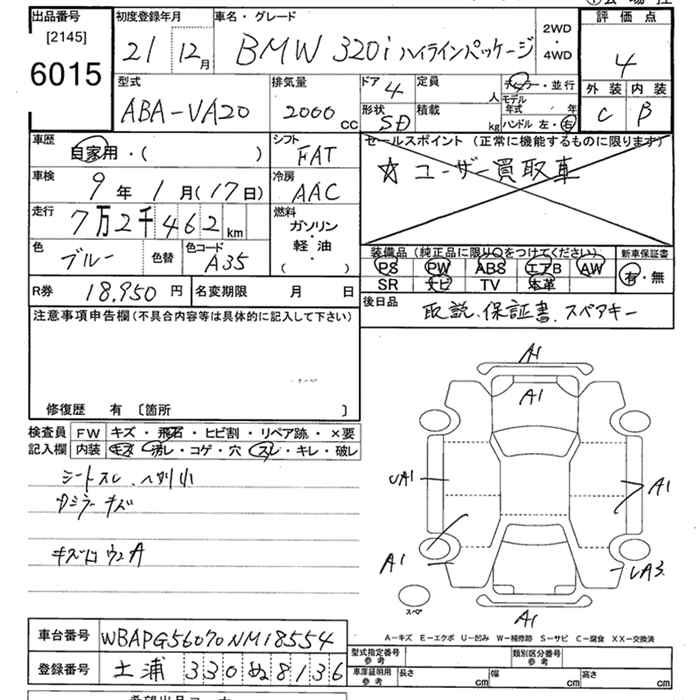 出品番号
[2145]
6015
初度登録年月
21 12月
車名・グレード
BMW 320i ハイラインパッケージ
2WD
・
4WD
評価点
4
外装 内装
C B
型式
ABA-VA20
排気量
2000 cc
ドア 4
形状 SD
定員 人
積載 kg
ディーラー・並行
モデル年式 年
ハンドル 左・右
車歴
自家用・( )
シフト
FAT
セールスポイント (正常に機能するものに限ります)
☆ユーザー買取車
車検
9年1月(17日)
冷房
AAC
走行
7万2千462km
燃料
ガソリン
・
軽油
・
( )
色
ブルー
色替
色コード
A35
装備品 (純正品に限り○をつけてください)
新車保証書
PS PW ABS エアB AW
有・無
SR ナビ TV 本革
R券
18,950円
名変期限 月 日
後日品
取説、保証書、スペアキー
注意事項申告欄(不具合内容等は具体的に記入して下さい)
修復歴 有 〔箇所 〕
検査員
記入欄
FW キズ・飛石・ヒビ割・リペア跡・×要
内装 キズ・汚レ・コゲ・穴・スレ・キレ・破レ
シートスレ、ヘタリ小
キズ凹ウエA
A1
A1
UA1
A1
A1
UA3
スペア
A1
A-キズ E-エクボ U-凹み W-補修跡 S-サビ C-腐食 XX-交換済
車台番号
WBAPG56070NM18554
型式指定番号
参考
類別区分番号
参考
登録番号
土浦 330 ぬ 8136
車庫証明用
参考
長さ cm
幅 cm
高さ cm